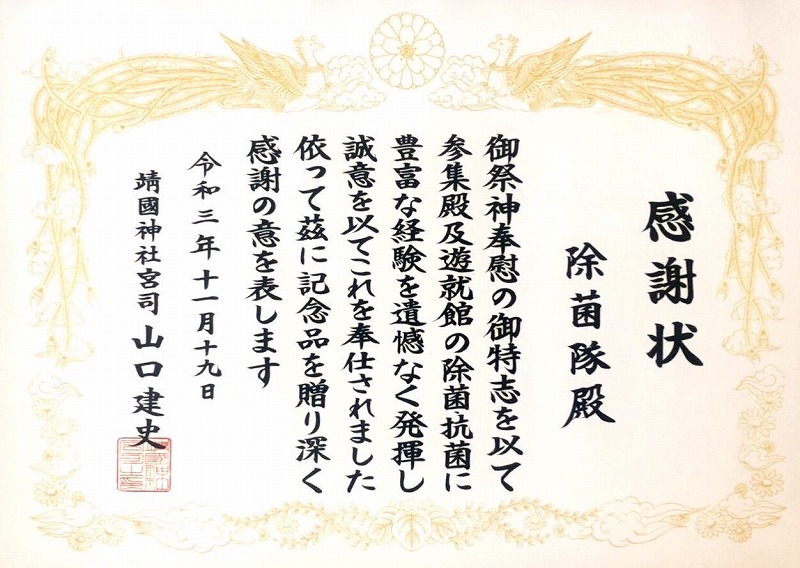 感謝状
除菌隊殿
御祭神奉慰の御特志を以て
参集殿及遊就館の除菌・抗菌に
豊富な経験を遺憾なく発揮し
誠意を以てこれを奉仕されました
依って茲に記念品を贈り深く
感謝の意を表します
令和三年十一月十九日
靖國神社宮司 山口建史